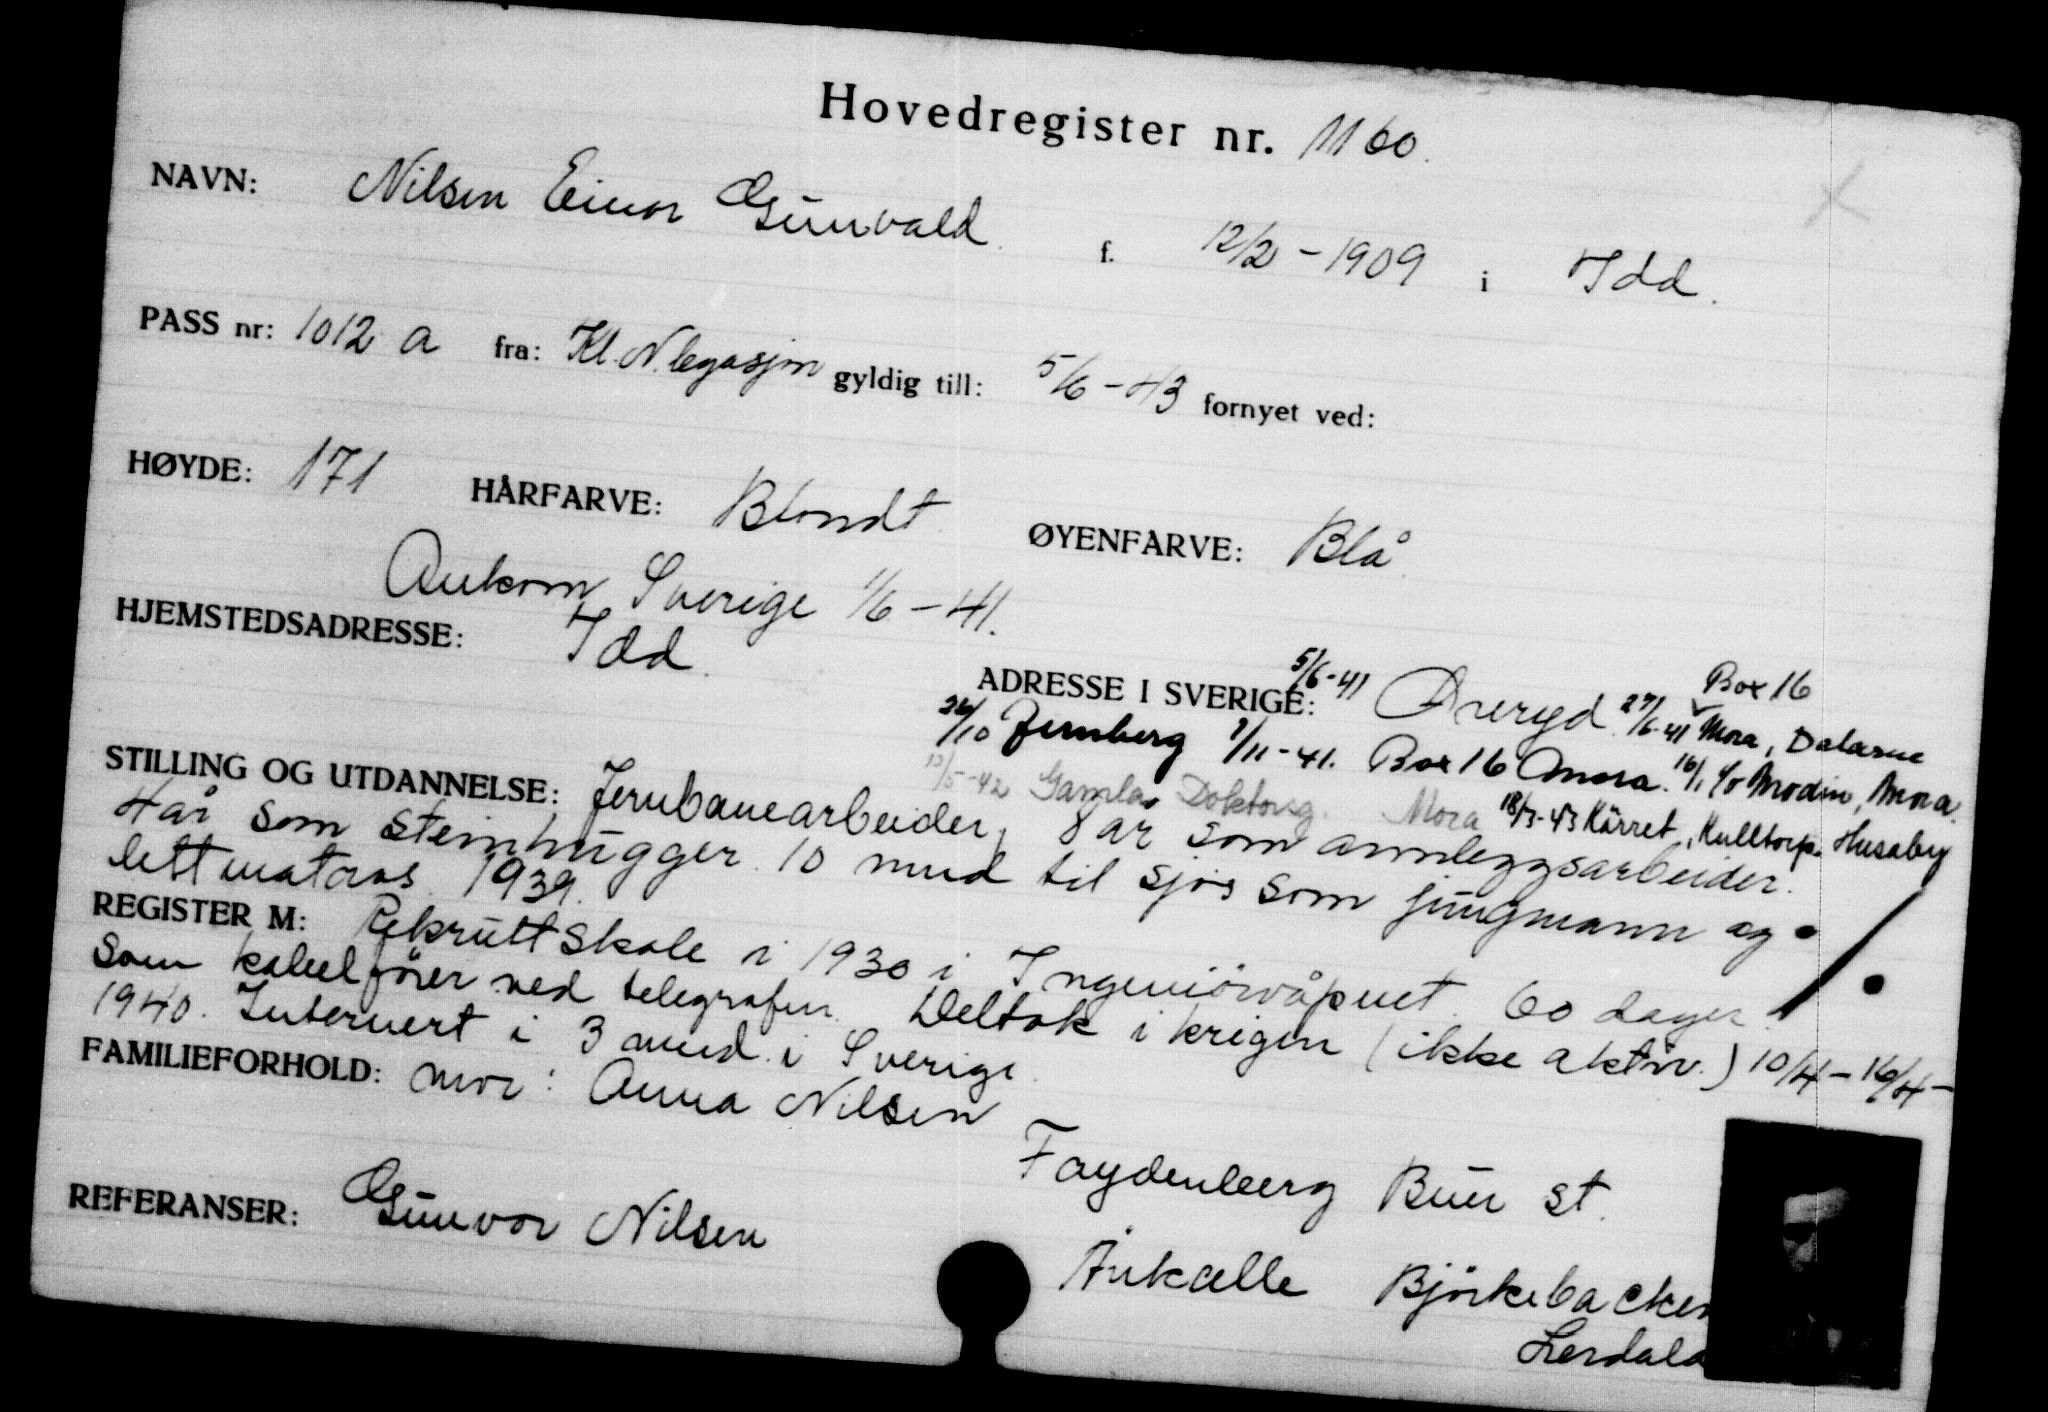 Hovedregister nr. 1160.
NAVN: Nilsen Einar Gunvald. f. 12/2 - 1909 i Idd.
PASS nr: 1012 a fra: Kl. N. legasjon gyldig till: 5/6 - 43 fornyet ved:
HØYDE: 171 HÅRFARVE: Blondt ØYENFARVE: Blå.
Ankom Sverige 1/6 - 41.
HJEMSTEDSADRESSE: Idd.
ADRESSE I SVERIGE: 5/6-41 Öreryd. 27/6-41 Box 16 Mora, Dalarne
26/10 Jernberg 1/11-41. Box 16 Mora. 16/1 c/o Modin, Mora.
13/5-42 Gamla Doktorsg. Mora 18/3-43 Kärret, Kulltorp. Husaby
STILLING OG UTDANNELSE: Jernbanearbeider, 8 år som annleggsarbeider.
4 år som steinhugger. 10 mnd til sjøs som jungmann og
lettmatros 1939.
REGISTER M: Rekruttskole i 1930 i Ingeniörvåpnet. 60 dager
som kabelfører ved telegrafen. Deltok i krigen (ikke aktiv.) 10/4 - 16/4 -
1940. Internert i 3 mnd. i Sverige.
FAMILIEFORHOLD: mor: Anna Nilsen
Faydenberg Buer st.
REFERANSER: Gunvor Nilsen
Ånkälle Björkebacken
Lerdala